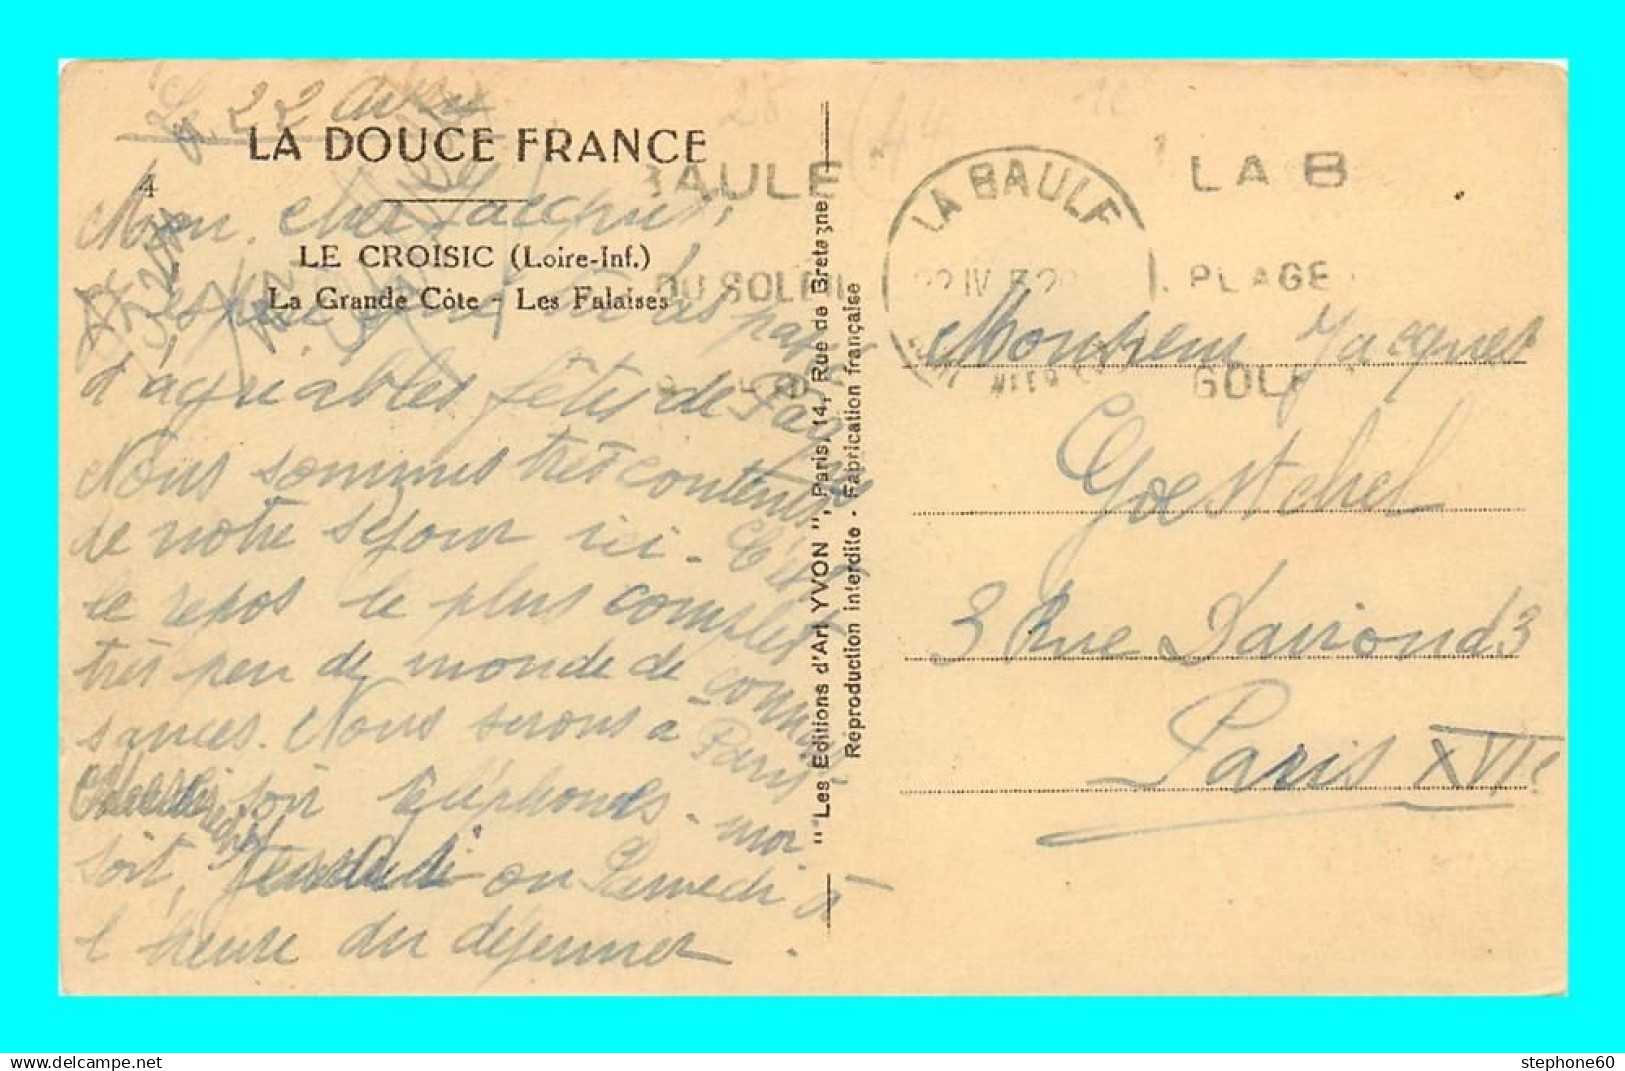 22 avril
LA DOUCE FRANCE
4
Mon cher Jacques,
LE CROISIC (Loire-Inf.)
La Grande Côte - Les Falaises
J'espère que tu as passé
d'agréables fêtes de Pâques
Nous sommes très contents
de notre séjour ici - C'est
le repos le plus complet
très peu de monde de connais-
sances. Nous serons à Paris
soir téléphones-moi
soit, Vendredi ou Samedi à
l'heure du déjeuner -
"Les Editions d'Art YVON", Paris, 14, Rue de Bretagne
Reproduction interdite - Fabrication française
28
(44
10
BAULE
DU SOLEIL
LA BAULE
22 IV
LA B
PLAGE
GOLF
Monsieur Jacques
Goetschel
3 Rue Davioud 3
Paris XVIe
stephone60
delcampe.net